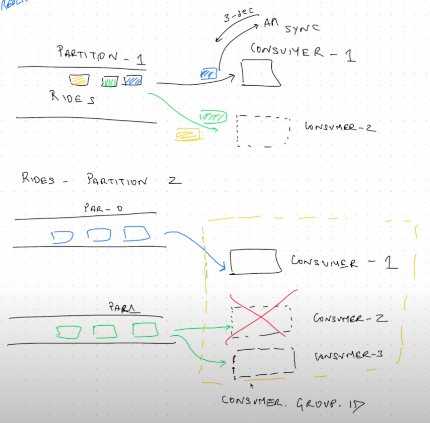 3-sec
ASYNC
PARTITION - 1
CONSUMER - 1
RIDES
CONSUMER-2
RIDES - PARTITION 2
PAR-0
CONSUMER - 1
PAR1
CONSUMER-2
CONSUMER-3
CONSUMER. GROUP. ID